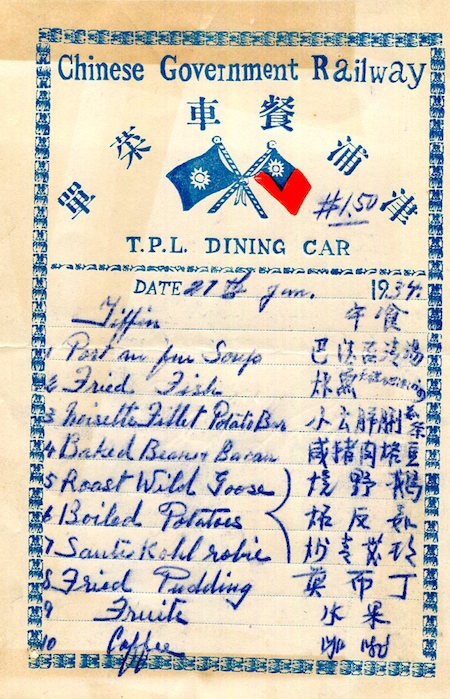 Chinese Government Railway
津浦餐車菜單
#1.50
T.P.L. DINING CAR
DATE 27th Jan. 1934.
Tiffin 午食
1 Soup 湯
2 Fried Fish 炸魚
3 Noisette Fillet Potato
4 Baked Beans Bacon 咸猪肉 豆
5 Roast Wild Goose 燒野鵝
6 Boiled Potatoes
7 Kohl robie 炒
8 Fried Pudding 布丁
9 Fruits 水果
10 Coffee 咖啡